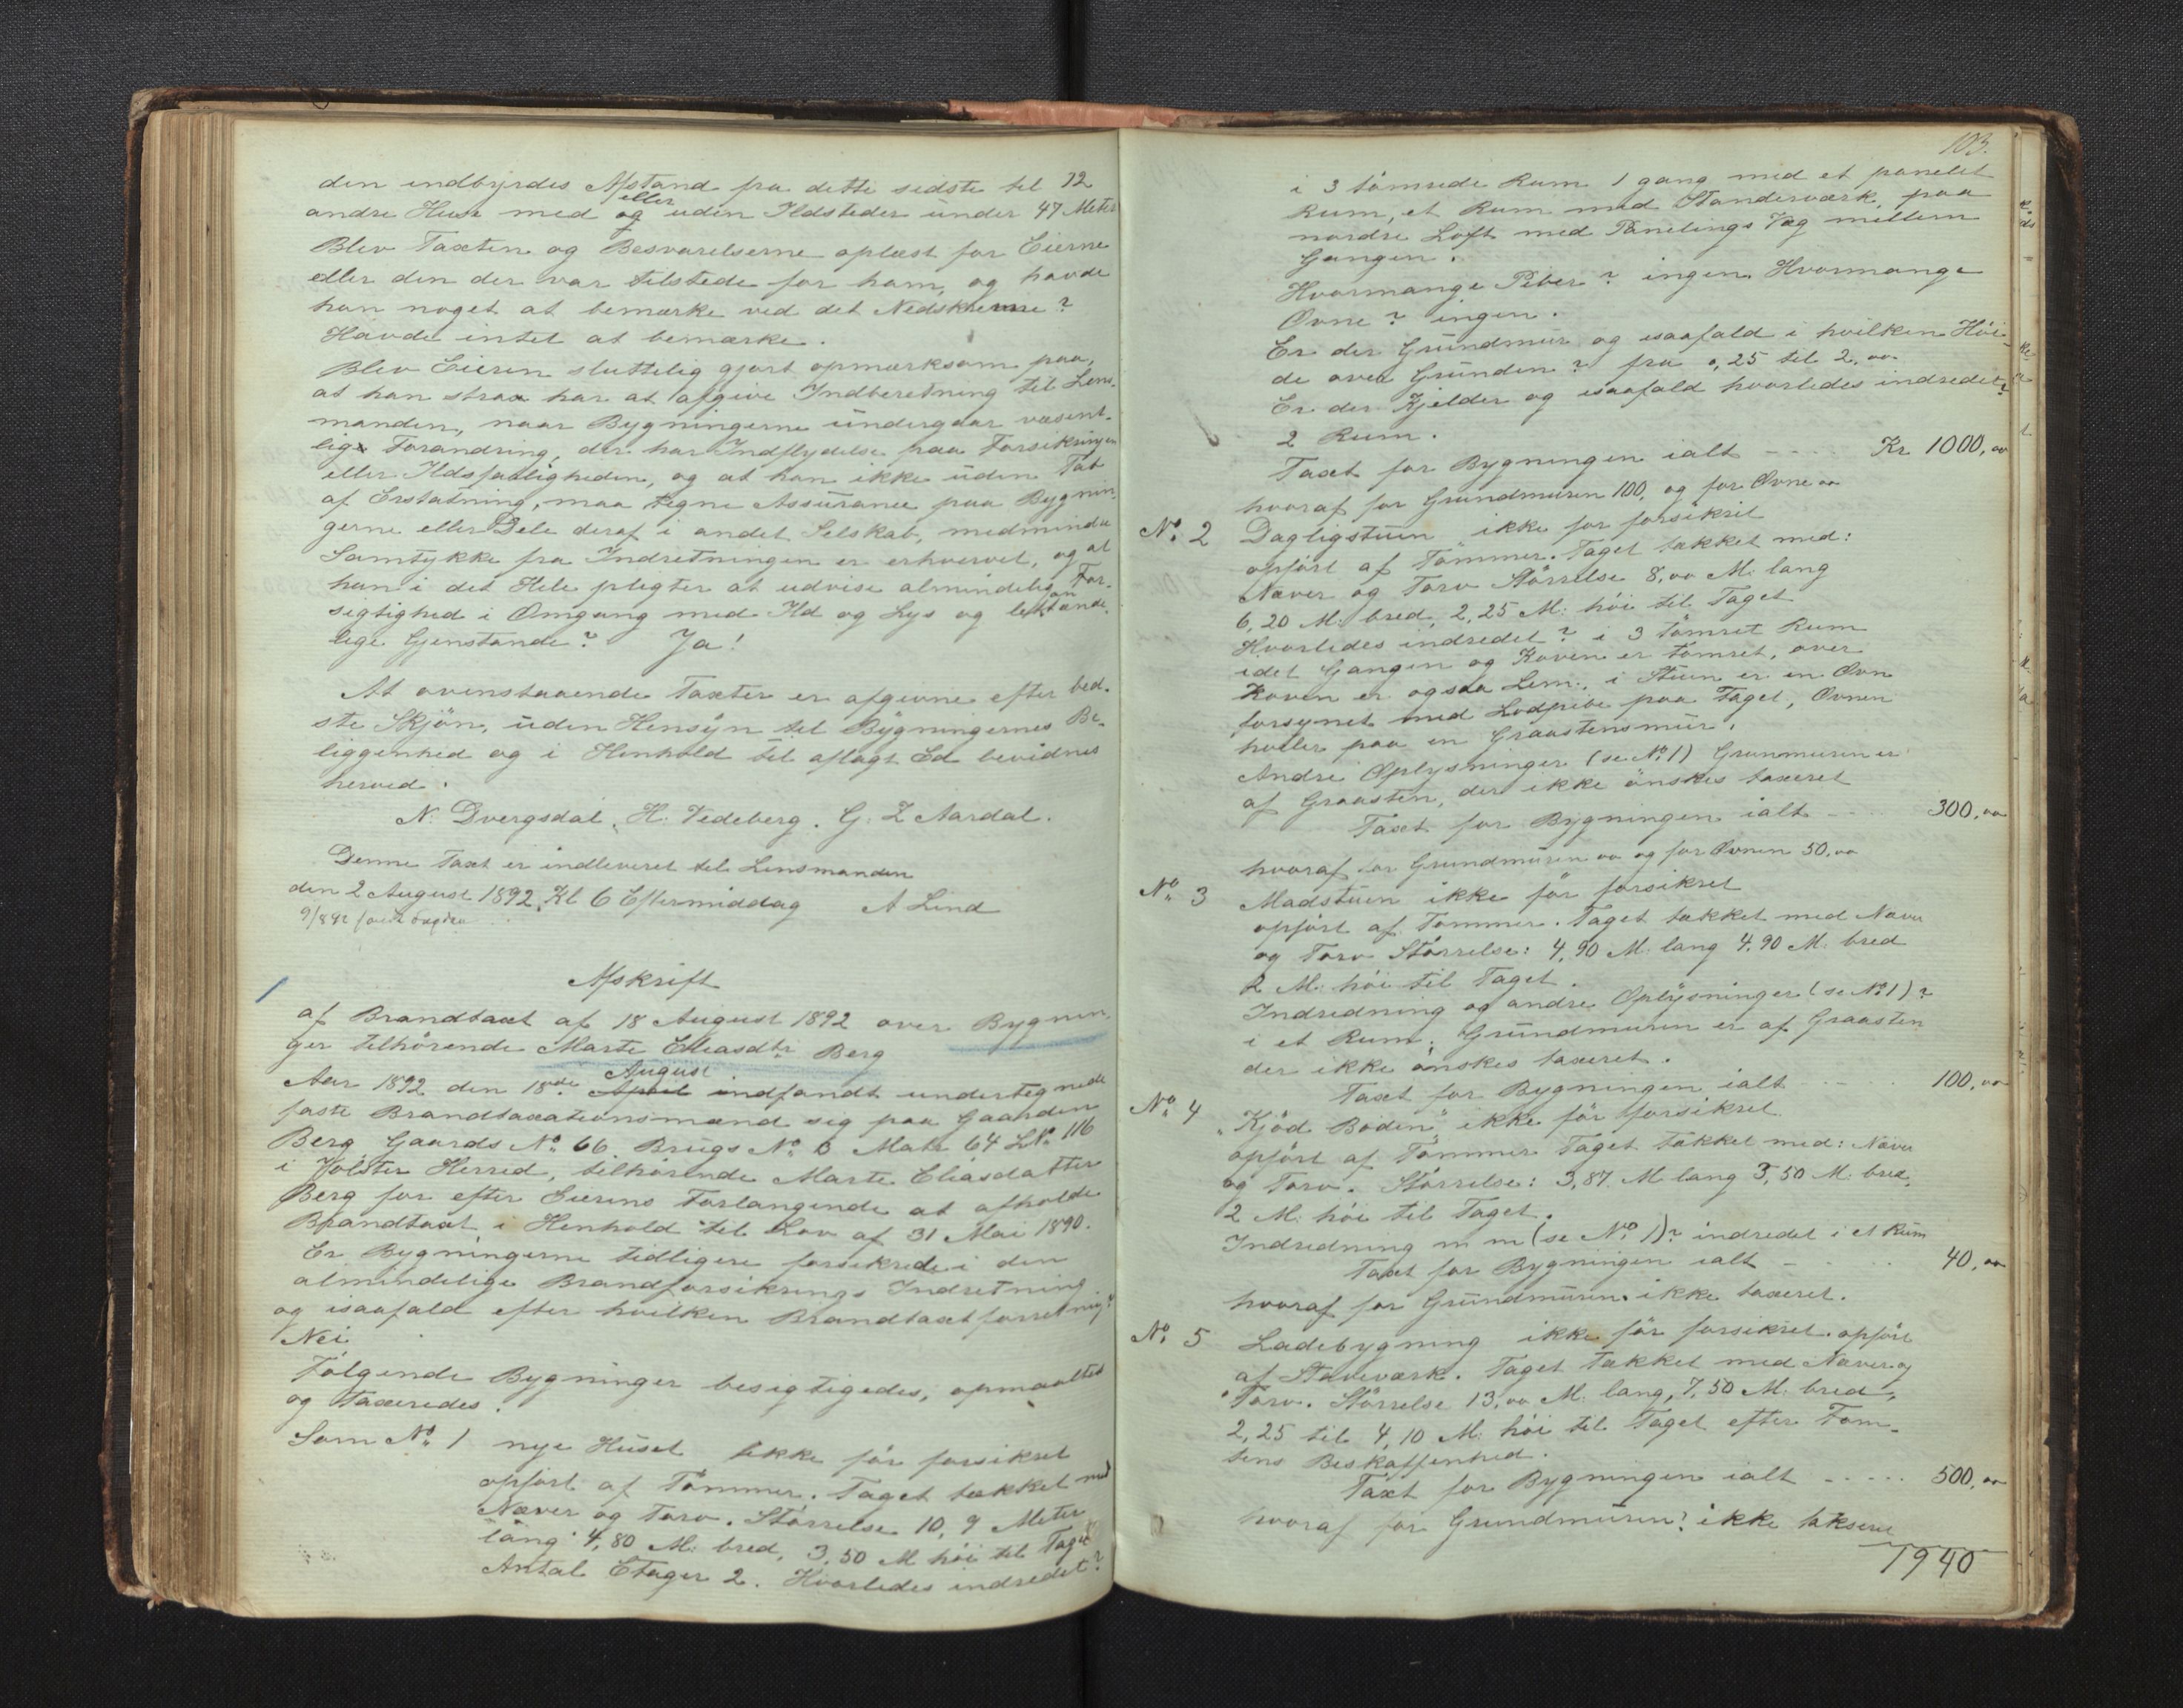 den indbyrdes Afstand fra dette sidste til 12
andre Huse med og eller uden Ildsteder under 47 Meter
Blev Taxten og Besvarelserne oplæst for Eierne
eller den der var tilstede for ham, og havde
han noget at bemærke ved det Nedskrevne?
Havde intet at bemærke.
Blev Eieren sluttelig gjort opmærksom paa,
at han strax har at afgive Indberetning til Lens-
manden, naar Bygningerne undergaar væsent-
lige Forandring, der har Indflydelse paa Forsikringen
eller Ildsfarligheden, og at han ikke uden Tab
af Erstatning, maa tegne Assurance paa Bygnin-
gerne eller Dele deraf i andet Selskab, medmindre
Samtykke fra Indretningen er erhvervet, og at
han i det Hele plegter at udvise almindelig For-
sigtighed i Omgang med Ild og Lys og let antænde-
lige Gjenstande? Ja!
At ovenstaaende Taxter er afgivne efter bed-
ste Skjön, uden Hensyn til Bygningernes Be-
liggenhed og i Henhold til aflagt Ed bevidnes
herved.
N. Dvergsdal. H. Vedeberg. G. Z Aardal.
Denne Taxt er indleveret til Lensmanden
den 2 August 1892, Kl 6 Eftermiddag A Lind
9/892
Afskrift
af Brandtaxt af 18 August 1892 over Bygnin-
ger tilhörende Marte Eliasdtr Berg
Aar 1892 den 18de April August indfandt undertegnede
faste Brandtaxationsmænd sig paa Gaarden
Berg Gaards No. 66. Brugs No. 3 Matr 64 LNo 116
i Jölster Herred, tilhörende Marte Eliasdatter
Berg for efter Eierens Forlangende at afholde
Brandtaxt i Henhold til Lov af 31 Mai 1890.
Er Bygningerne tidligere forsikrede i den
almindelige Brandforsikrings Indretning
og isaafald efter hvilken Brandtaxtforretning?
Nei
Fölgende Bygninger besigtigedes, opmaaltes
og taxeredes.
Som No. 1 nye Huset ikke för forsikret
opfört af Tömmer. Taget tækket med
Næver og Torv. Störrelse 10,9 Meter
lang 4,80 M. bred, 3,50 M höi til Taget
Antal Etager 2. Hvorledes indredet?
103.
i 3 tömrede Rum 1 gang med et panelet
Rum, et Rum med Standerværk, paa
nordre Loft med Panelings Væg mellem
Gangen.
Hvormange Piber? ingen. Hvormange
Ovne? ingen.
Er der Grundmur og isaafald i hvilken Höi-
de over Grunden? fra 0,25 til 2,00
Er der Kjelder og isaafald hvorledes indredet?
2 Rum.
Taxt for Bygningen ialt - - - - Kr 1000,00
hvoraf for Grundmuren 100, og for Ovne 00
No. 2 Dagligstuen ikke för forsikret
opfört af Tömmer. Taget tækket med:
Næver og Torv Störrelse 8,00 M. lang
6,20 M. bred, 2,25 M. höi til Taget
Hvorledes indredet? i 3 tömret Rum
idet Gangen og Koven er tömret, over
Koven er ogsaa Lem, i Stuen er en Ovn
forsynet med Lodpibe paa Taget, Ovnen
hviler paa en Graastensmur.
Andre Oplysninger (se No. 1) Grunmuren er
af Graasten, der ikke önskes taxeret
Taxt for Bygningen ialt - - 300,00
hvoraf for Grundmuren 00 og for Ovnen 50,00
No. 3 Madstuen ikke för forsikret
opfört af Tömmer. Taget tækket med Næver
og Torv Störrelse: 4,90 M. lang 4,90 M. bred
2 M. höi til Taget.
Indredning og andre Oplysninger (se No. 1)?
i et Rum. Grundmuren er af Graasten
der ikke önskes taxeret.
Taxt for Bygningen ialt - - - 100,00
No. 4 "Kjöd Boden" ikke för forsikret
opfört af Tömmer Taget tækket med: Næver
og Torv. Störrelse: 3,87 M lang 3,50 M. bred,
2 M. höi til Taget.
Indredning m m (se No. 1)? indredet i et Rum
Taxt for Bygningen ialt - - - 40,00
hvoraf for Grundmuren ikke taxeret.
No. 5 Ladebygning ikke för forsikret. opfört
af Staveværk. Taget tækket med Næver og
Torv. Störrelse 13,00 M. lang, 7,50 M. bred,
2,25 til 4,10 M. höi til Taget efter Tom-
tens Beskaffenhed.
Taxt for Bygningen ialt - - - - - 500,00
hvoraf for Grundmuren? ikke takseret
1940